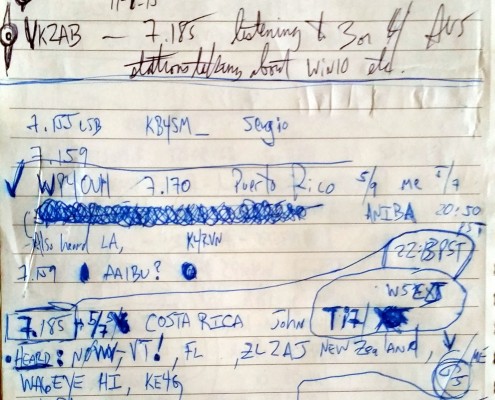 VK2AB — 7.185 listening to 3 or 4 AUS
stations talking about Win10 etc.
7.155 LSB KB4SM_ Sergio
7.159
7.170 Puerto Rico 5/9 ME 5/7
ANIBA 20:50
PST
Also heard LA, K4ZVN
22:13 PST
7.159 AA1BU?
W5EXJ
7.185 5/7 COSTA RICA John TI7/
HEARD: VT!, FL, ZL2AJ NEW ZEALAND, ME
WA6EVE HI, KE4G 5/5